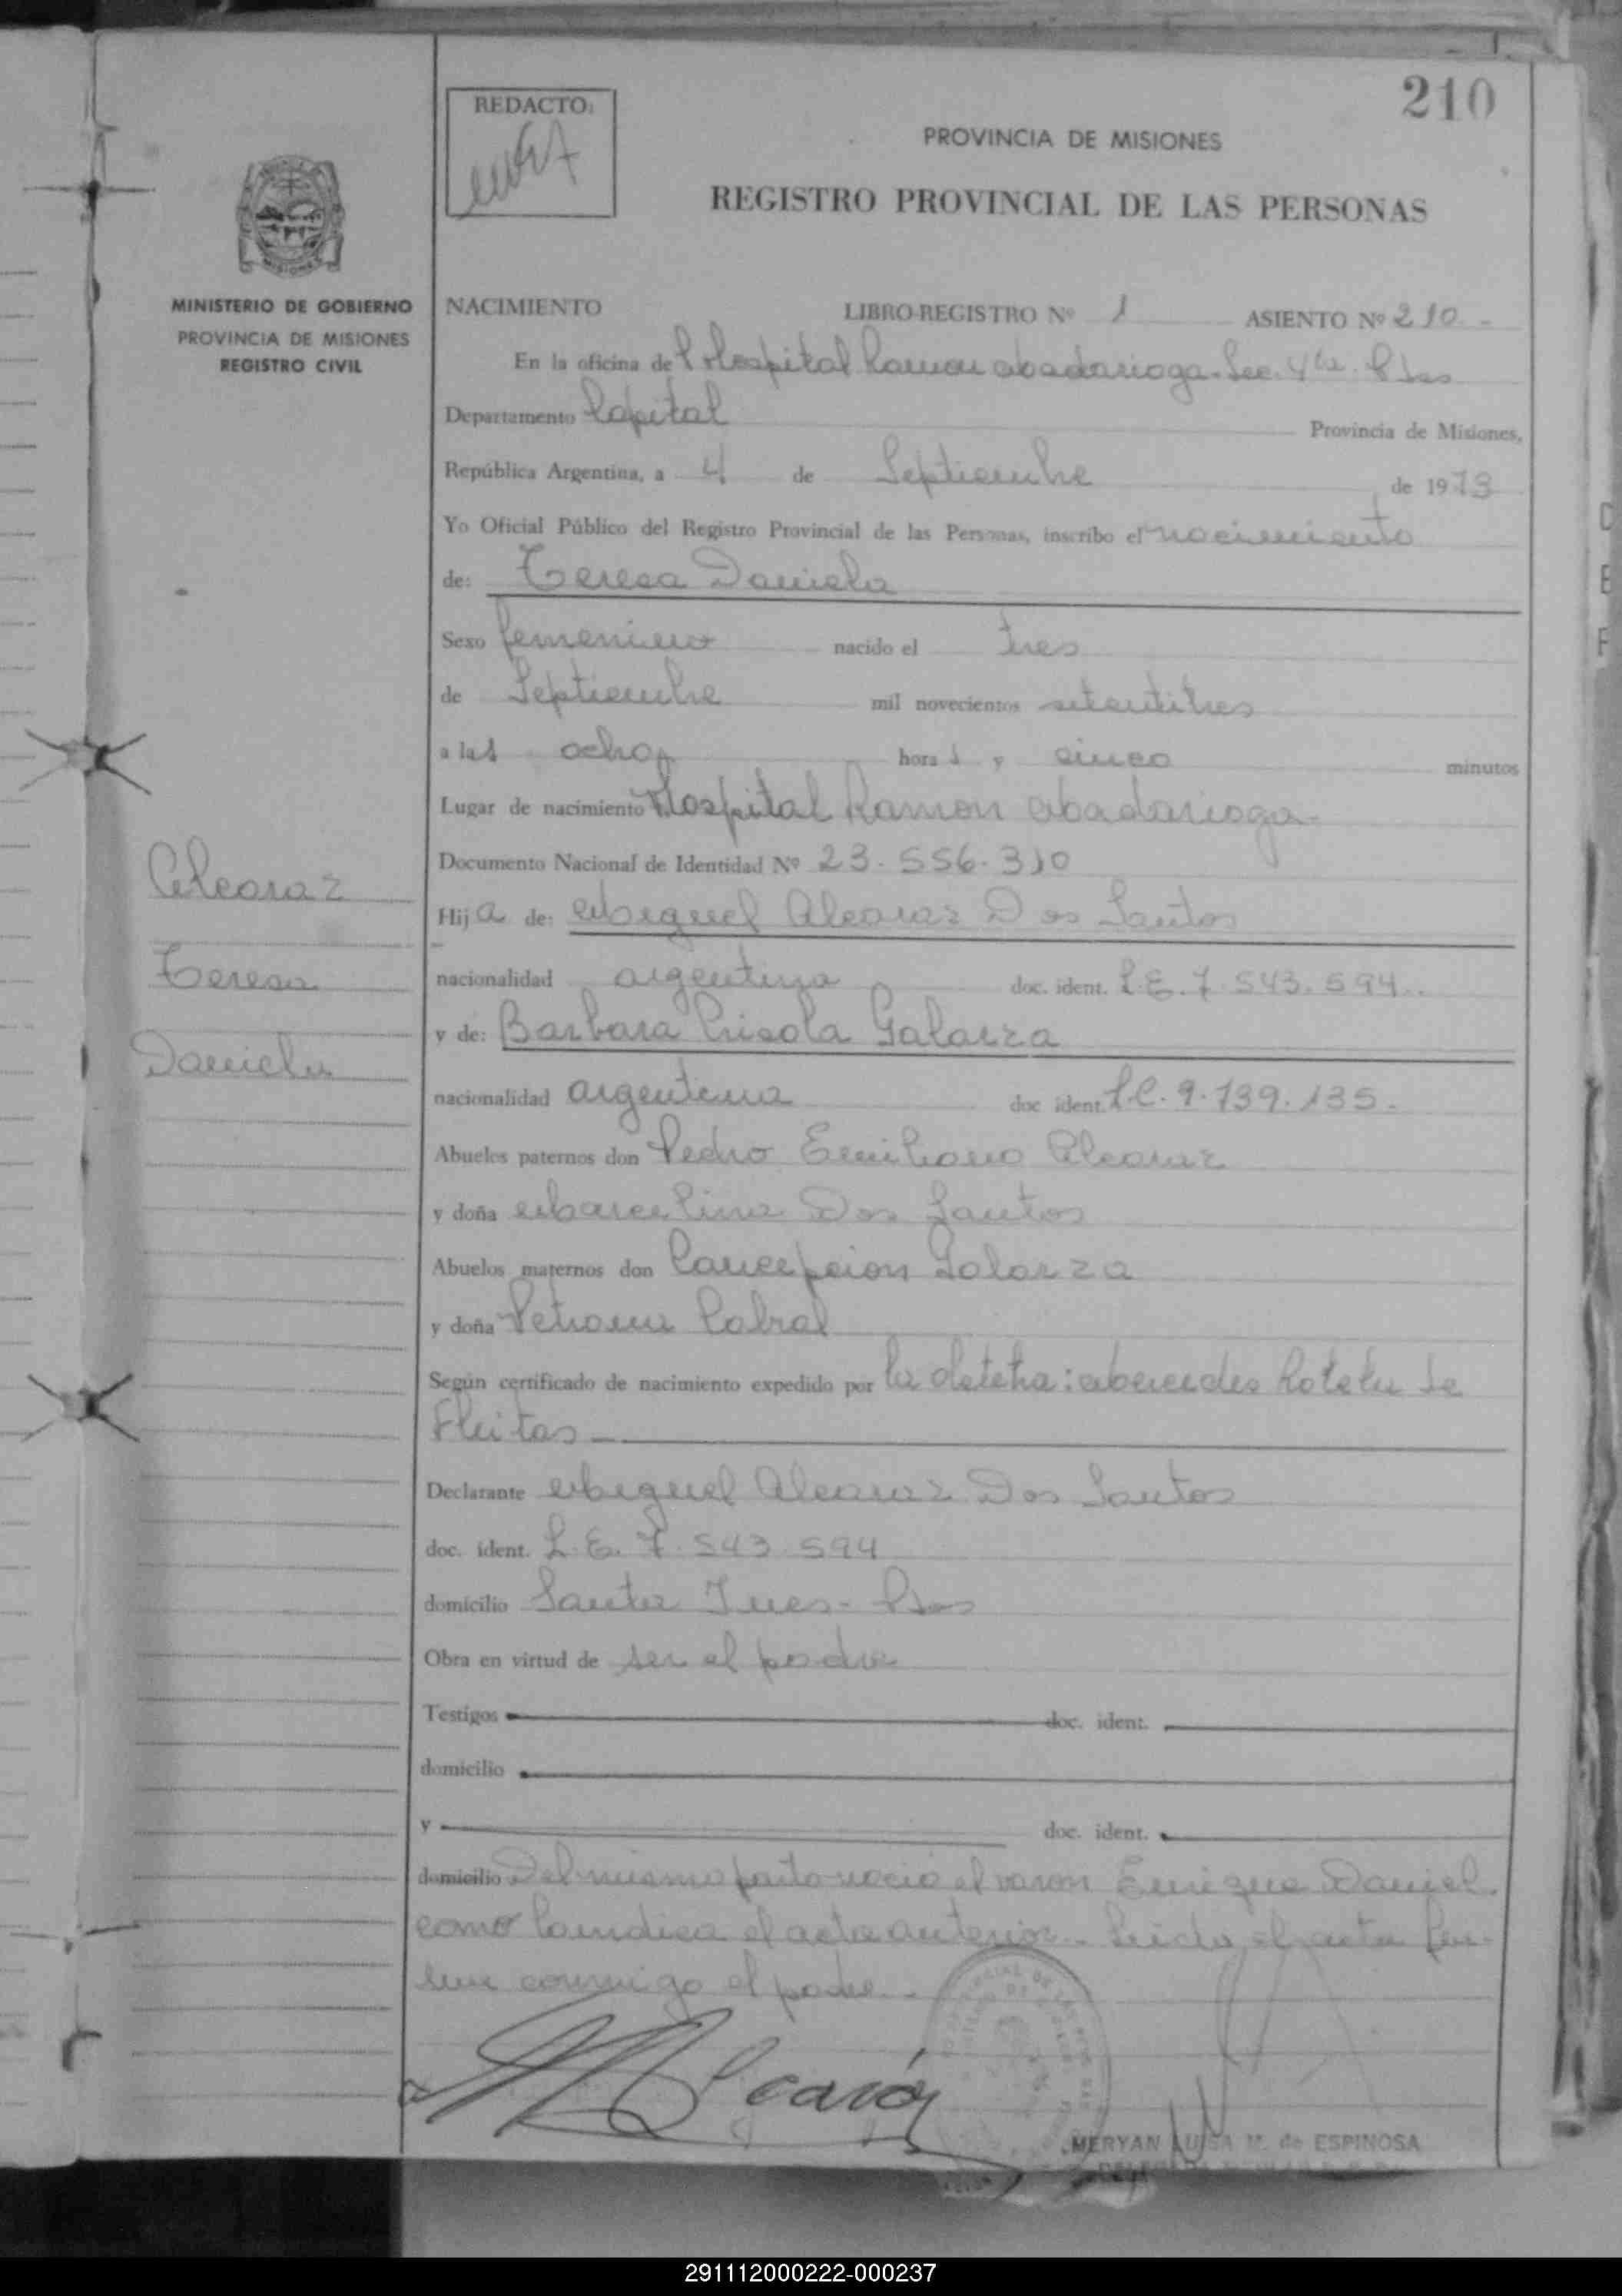 210
REDACTO:
PROVINCIA DE MISIONES
REGISTRO PROVINCIAL DE LAS PERSONAS
MISIONES
MINISTERIO DE GOBIERNO
PROVINCIA DE MISIONES
REGISTRO CIVIL
NACIMIENTO LIBRO-REGISTRO Nº 1 ASIENTO Nº 210.-
En la oficina de Hospital Ramon Madariaga. Sec. 4ta. Pdas
Departamento Capital Provincia de Misiones,
República Argentina, a 4 de Septiembre de 1973
Yo Oficial Público del Registro Provincial de las Personas, inscribo el nacimiento
de: Teresa Daniela
Sexo femenino nacido el tres
de Septiembre mil novecientos setentitres
a las ocho hora s y cinco minutos
Lugar de nacimiento Hospital Ramon Madariaga-
Documento Nacional de Identidad Nº 23.556.310
Alcaraz
Hija de: Miguel Alcaraz Dos Santos
Teresa
nacionalidad argentina doc. ident. L.E. 7.543.594..
y de: Barbara Crisola Galarza
Daniela
nacionalidad argentina doc ident. L.C. 9.739.135.-
Abuelos paternos don Pedro Emiliano Alcaraz
y doña Marcelina Dos Santos
Abuelos maternos don Concepcion Galarza
y doña Petrona Cabral
Según certificado de nacimiento expedido por la obstetra: Mercedes de
Fleitas
Declarante Miguel Alcaraz Dos Santos
doc. ident. L.E. 7.543.594
domicilio Santa Ines- Pdas
Obra en virtud de ser el padre
Testigos doc. ident.
domicilio
y doc. ident.
domicilio Del mismo parto nació el varon Enrique Daniel.
como lo indica el acta anterior.- Leida el acta fir-
ma conmigo el padre.-
MERYAN LUISA M. de ESPINOSA
291112000222-000237